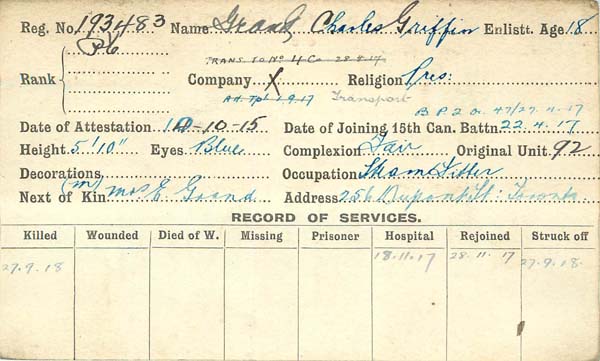 Reg. No. 193483 Name Grand, Charles Griffin Enlistt. Age 18
Pte
TRANS TO No 4 Co 28-8-17
Rank Company X Religion Pres:
1.9.17 Transport
B.P.2 O. 47/27.4.17
Date of Attestation 10-10-15 Date of Joining 15th Can. Battn. 22.4.17
Height 5'10" Eyes Blue Complexion Fair Original Unit 92
Decorations Occupation Steam Fitter
Next of Kin (m) Mrs E Grand Address 256 Dupont St: Toronto
RECORD OF SERVICES.
Killed Wounded Died of W. Missing Prisoner Hospital Rejoined Struck off
27.9.18 18.11.17 28.11.17 27.9.18.